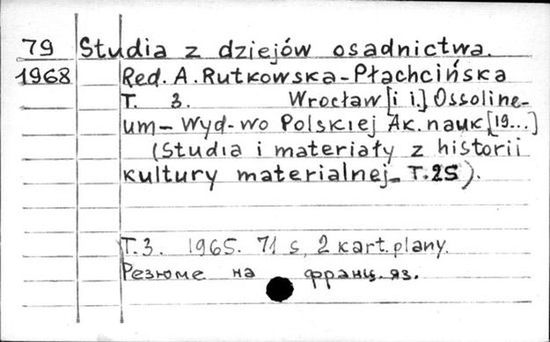 79 Studia z dziejów osadnictwa.
1968 Red. A. Rutkowska-Płachcińska
T. 3. Wrocław [i i.] Ossoline-
um - Wyd-wo Polskiej Ak. nauk, [19...]
(Studia i materiały z historii
kultury materialnej. T. 25).
T. 3. 1965. 71 s, 2 kart. plany.
Резюме на франц. яз.